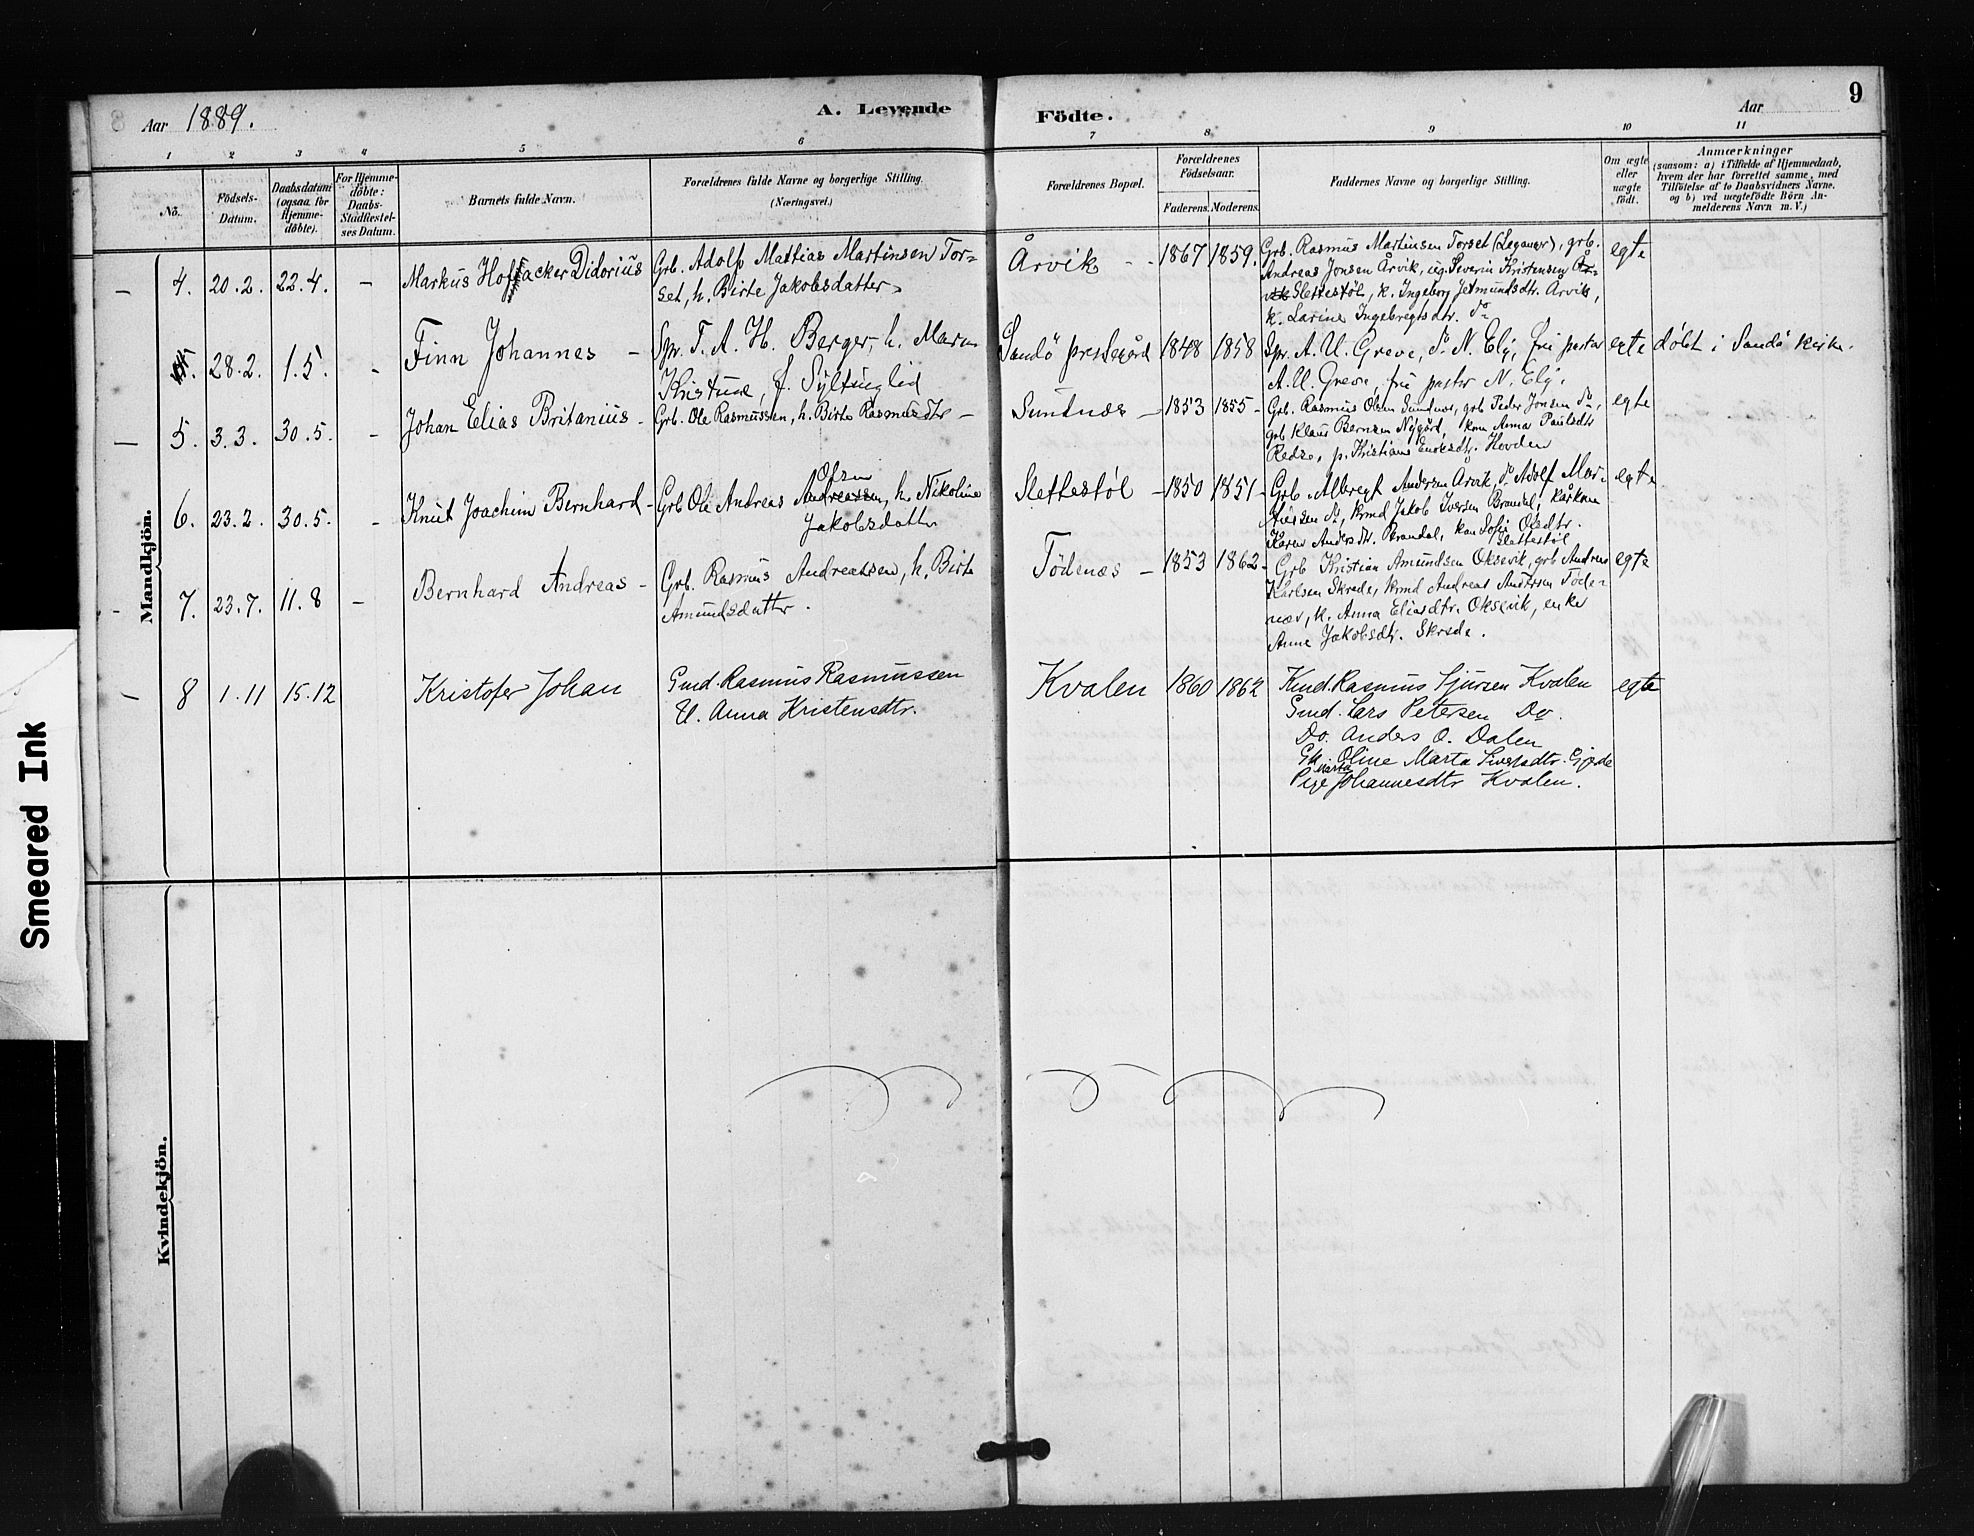 8 Aar 1889. A. Levende Födte. Aar 9
1 2 3 4 5 6 7 8 9 10 11
No.
Födsels-Datum.
Daabsdatum (ogsaa for Hjemme-döbte).
For Hjemme-döbte: Daabs-Stadfæstel-ses Datum.
Barnets fulde Navn.
Forældrenes fulde Navne og borgerlige Stilling. (Næringsvei.)
Forældrenes Bopæl.
Forældrenes Födselsaar.
Faderens. Moderens.
Faddernes Navne og borgerlige Stilling.
Om ægte eller uægte födt.
Anmærkninger
(saasom: a) i Tilfælde af Hjemmedaab,
hvem der har forrettet samme, med
Tilföielse af to Daabsvidners Navne,
og b) ved uægtefödte Börn An-
melderens Navn m. V.)
Mandkjön.
4. 20.2. 22.4. - Markus Hoffacker Didorius
Grb. Adolf Mattias Martinsen Tor=
set, h. Birte Jakobsdatter
Årvik 1867 1859.
Grb. Rasmus Martinsen Torset (Leganger), grb.
Andreas Jonsen Årvik, ug. Severin Kristensen År=
vik Slettestöl, k. Ingeborg Jetmundsdtr. Arvik,
k. Larine Ingebregtsdtr. Do
egte
28.2. 1.5. - Finn Johannes -
Spr. T. A. H. Berger, h. Maren
Kristine, f.
Sandö prestegård 1848 1858
Spr. A. U. Greve, Do N. Ely, frü pastor
A. U. Greve, frü pastor N. Ely.
egte döbt i Sandö kirke.
5. 3.3. 30.5. - Johan Elias Britanius -
Grb. Ole Rasmussen, h. Birte Rasmusdtr -
Sundnæs - 1853 1855 -
Grb. Rasmus Olsen Sundnæs, grb Peder Jonsen Do,
grb Klaus Berntsen Nygård, kone Anna Paulsdtr
p. Kristiane Enoksdtr. Hovden
egte
6. 23.2. 30.5. - Knut Joachim Bernhard -
Olsen
Grb Ole Andreas Andreassen, h. Nikoline
Jakobsdatter
Slettestöl - 1850 1851 -
Grb. Albregt Andersen Arvik, Do Adolf Mar-
Do, krmd Jakob Iversen Brandal, kårkone
Karen Andersdtr. Brandal, kone Sofie Olsdtr.
Slettestöl
egte
7. 23.7. 11.8 - Bernhard Andreas -
Grb. Rasmus Andreassen, h. Birte
Amundsdatter.
Tödenæs - 1853 1862 -
Grb Kristian Amundsen Oksevik, grb Andreas
Karlsen Skrede, krmd Andreas Andersen Töde-
næs, k. Anna Eliasdtr. Oksevik, enke
Anne Jakobsdtr. Skrede.
egte
8 1.11 15.12 Kristofer Johan
Gmd. Rasmus Rasmussen
U. Anna Kristensdtr.
Kvalen 1860 1862
Kmd. Rasmus Sjursen Kvalen
Gmd. Lars Petersen Do.
Do. Anders O. Dalen
Gk. Oline Marta Sivertsdtr. Gjerde
Marta
Pige Johannesdtr Kvalen.
egte
Kvindekjön.
Smeared Ink